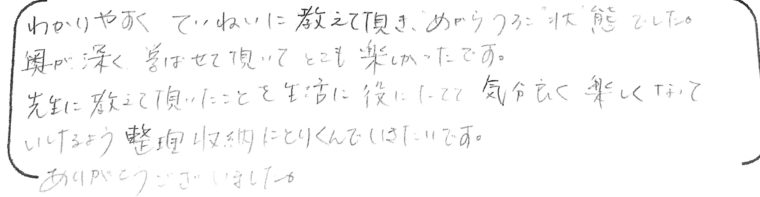 わかりやすく ていねいに 教えて頂き、めからうろこ状態でした。
奥が深く 学ばせて頂いて とても 楽しかったです。
先生に教えて頂いたことを生活に 役にたてて 気分良く 楽しくなって
いけるよう 整理収納にとりくんでいきたいです。
ありがとうございました。